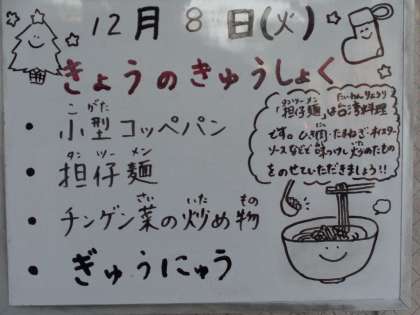 12月8日(火)
きょうのきゅうしょく
・小型コッペパン
・担仔麺
・チンゲン菜の炒め物
・ぎゅうにゅう
「担仔麺」は台湾料理
です。ひき肉・たまねぎ・オイスター
ソースなどで味つけし炒めたもの
をのせていただきましょう!!